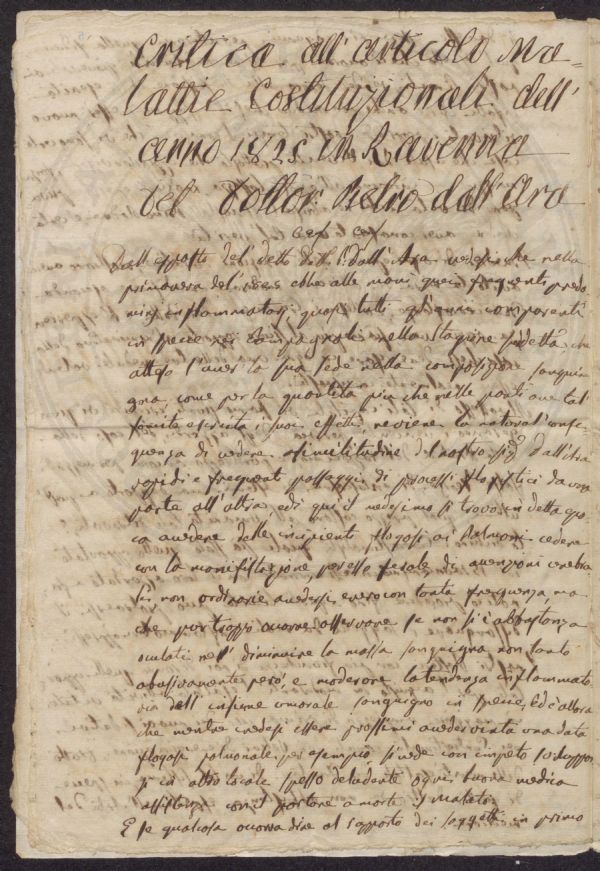 Critica all' articolo Ma=
lattie Costituzionali dell'
anno 1825 in Ravenna
del Dottor Pietro dall'Ara
Dall'esposto del detto Dall'Ara vedesi che nella
primavera del 1825 ebbe alle mani frequenti predo
infiammatorj quasi tutti gli
in specie nella stagione che
atteso l'aver la sua sede nella composizione sangui
gna, come per la quantità più che nelle parti ove tal
esercita i suoi effetti, ne viene la natural conse=
guenza di vedere a similitudine del nostro dall'Ara
rapidi e frequenti passaggi di processi flogistici da una
parte all'altra, ed di qui il medesimo si trovò in detta epo
ca a vedere delle incipienti flogosi ai Polmoni cedere
con la manifestazione di cerebra
li non ordinarie a vedersi con tanta frequenza ma
che pur troppo occorre osservare se non si è abbastanza
oculati nell' diminuire la massa sanguigna non tanto
abusivamente però, e moderare la tendenza infiammato
ria dell' infermo umorale sanguigno in specie, ed è allora
che mentre credesi essere prossimi a veder vinta una data
flogosi polmonale per esempio, si vede con impeto svilupper
si in altro locale spesso deludente ogni buona medica
assistenza con il portare a morte il malato.
E se qualcosa occorre dire al rapporto dei soggetti in primo